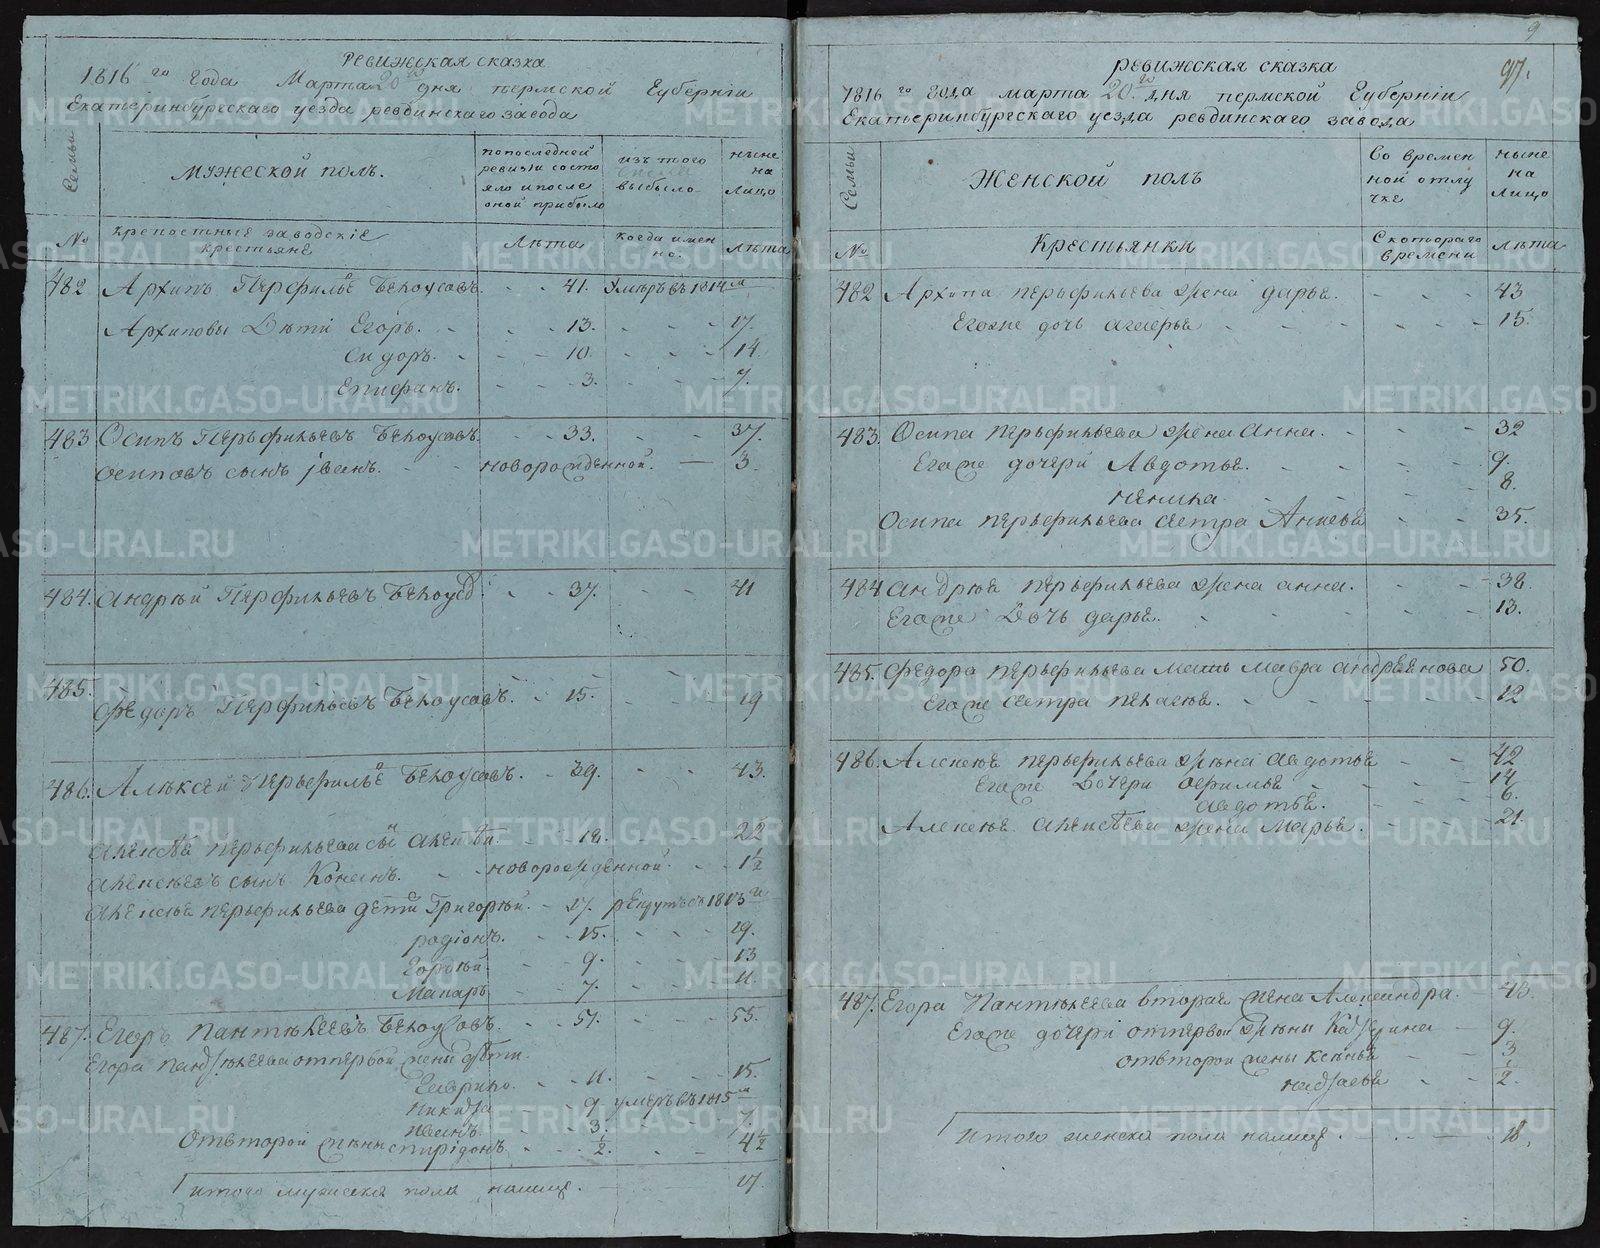 Ревижская сказка
1816 го года Марта 20 го дня пермской Губернїи
Екатеринбургскаго уезда ревдинскаго завода
Семьи
Мужеской полъ.
попоследней ревизїи состояло и после оной прибыло
изъ того числа выбыло
ныне на лицо
№
Крепостные заводскїе крестьяне
Лѣта
Когда имен но.
лѣта
482 Архипъ Перфильевъ Белоусовъ. 41. Умѣръ въ 1814 м
Архиповы Дѣти Егоръ. 13. 17.
Сидоръ. 10. 14.
Епифанъ. 3. 7.
483 Осипъ Перьфильевъ Белоусовъ. 33. 37.
Осиповъ сынъ їванъ. новорожденной. 3.
484. Андрѣй Перфильевъ Белоусо 37. 41
485. Федоръ Перфильевъ Белоусовъ. 15. 19
486. Алѣксѣй Перьфилье Белоусовъ. 39. 43.
Перьфильева сы 18. 22
сынъ новорожденной. 1½
перьфильева дети Григорѣй. 17. рекрутъ въ 1813 м
родїонъ. 15. 19.
Гордѣй 9. 13
Макаръ 7. 11.
487. Егоръ Пантѣлеевъ Белоусовъ. 51. 55.
Егора отпервой жены дѣти.
Гаврило. 11. 15.
Никита 9 умеръ въ 1815 м
Иванъ. 3. 7.
Отвторой жены спирїдонъ. ½. 4½
итого мужеска пола налицо. 17.
9
97.
ревижская сказка
1816 го года марта 20. го дня пермской Губернїи
Екатеринбургскаго уезда ревдинскаго завода
Семьи
Женской полъ
Во времен ной отлу чке
ныне на лицо
№
Крестьянки
С котораго времени
лѣта
482 Архипа перьфильева жена дарья. 43
Егоже дочь 15.
483. Осипа перьфильева жена Анна. 32
Егоже дочери Авдотья. 9.
8.
Осипа перьфильева сестра 35.
484 андрѣя перьфильева жена анна. 38.
Егоже Дочь дарья. 13.
485. федора перьфильева мать мавра андреянова 50.
Егоже сестра пелагея. 12
486. Алексея перьфильева жена авдотья 42
Егоже Дочери 14
авдотья. 6.
Алексея жена Марья. 21.
487. Егора Пантѣлеева вторая жена Александра. 48.
Егоже дочери отпервой жены Катерина 9.
отвторой жены ксенья 3
½.
Итого женска пола налицо. 18.
METRIKI.GASO-URAL.RU